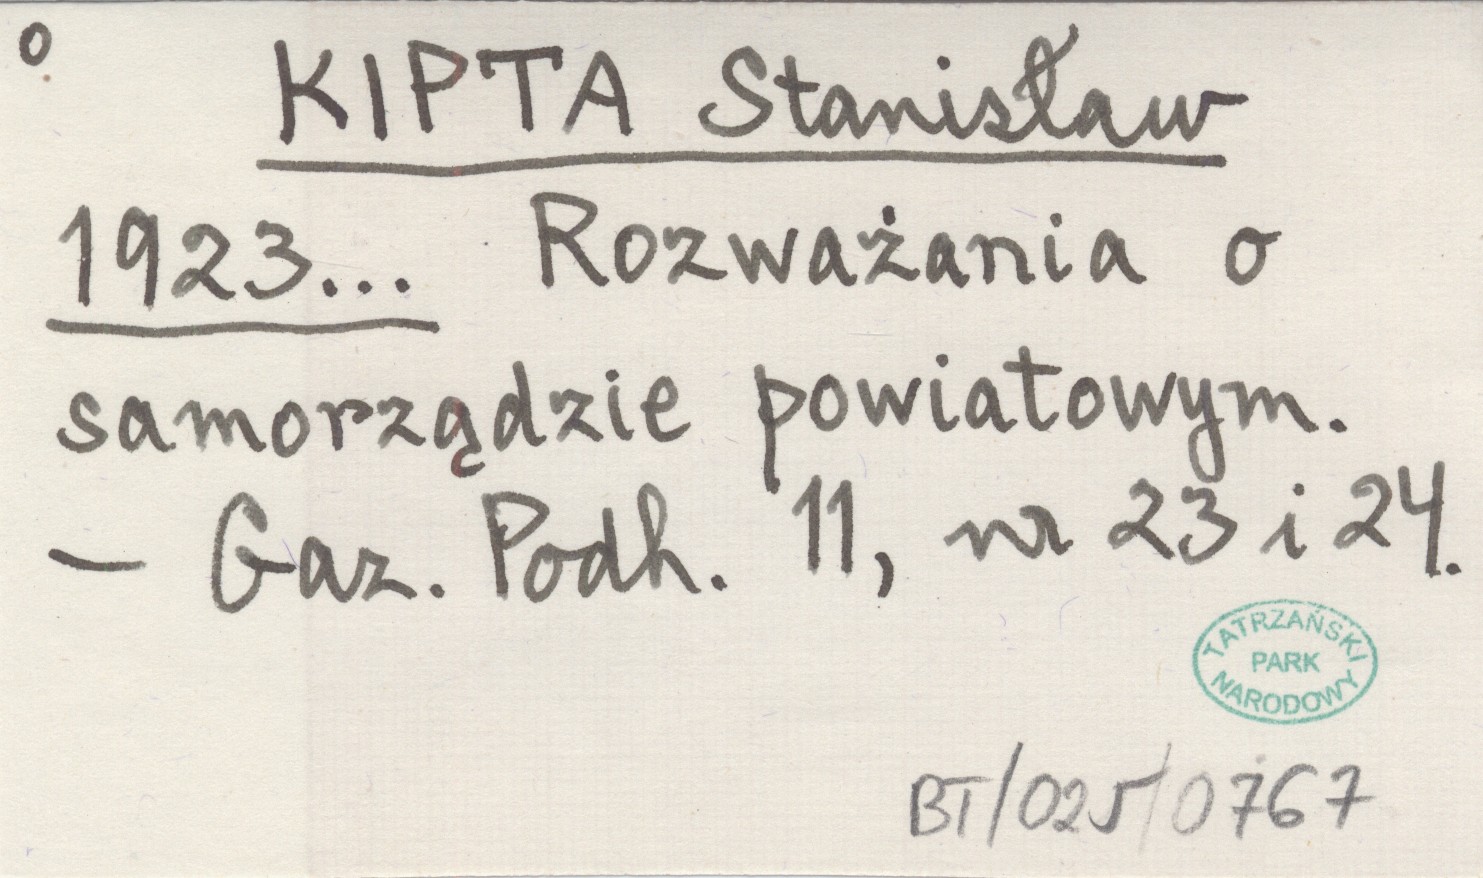 o
KIPTA Stanisław
1923... Rozważania o
samorządzie powiatowym.
— Gaz. Podh. 11, nr 23 i 24.
TATRZAŃSKI
PARK
NARODOWY
BT/025/0767